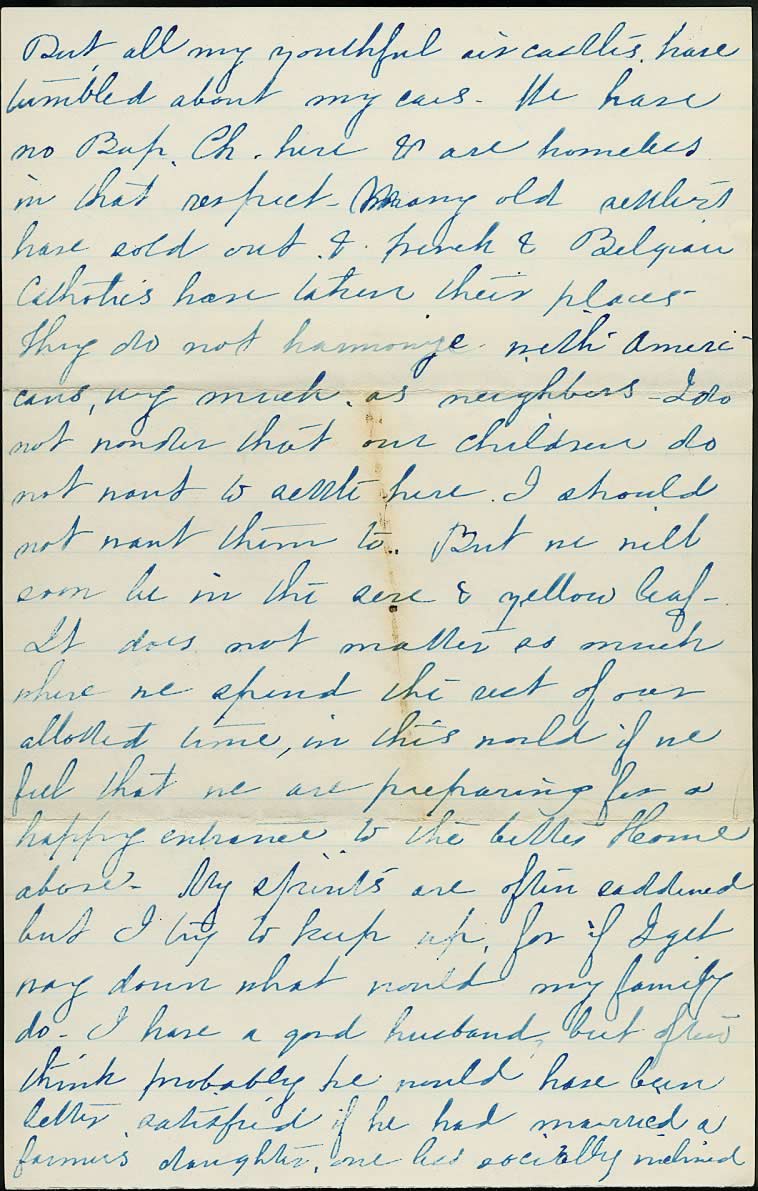 But all my youthful air castles have
tumbled about my ears - We have
no Bap. Ch. here & are homeless
in that respect - Many old settlers
have sold out & French & Belgian
Catholics have taken their places -
They do not harmonize with Ameri-
cans, very much, as neighbors - I do
not wonder that our children do
not want to settle here. I should
not want them to. But we will
soon be in the sere & yellow leaf -
It does not matter so much
where we spend the rest of our
allotted time, in this world if we
feel that we are preparing for a
happy entrance to the better Home
above - My spirits are often saddened
but I try to keep up, for if I get
way down what would my family
do - I have a good husband, but often
think probably he would have been
better satisfied if he had married a
farmer's daughter, one less socially inclined